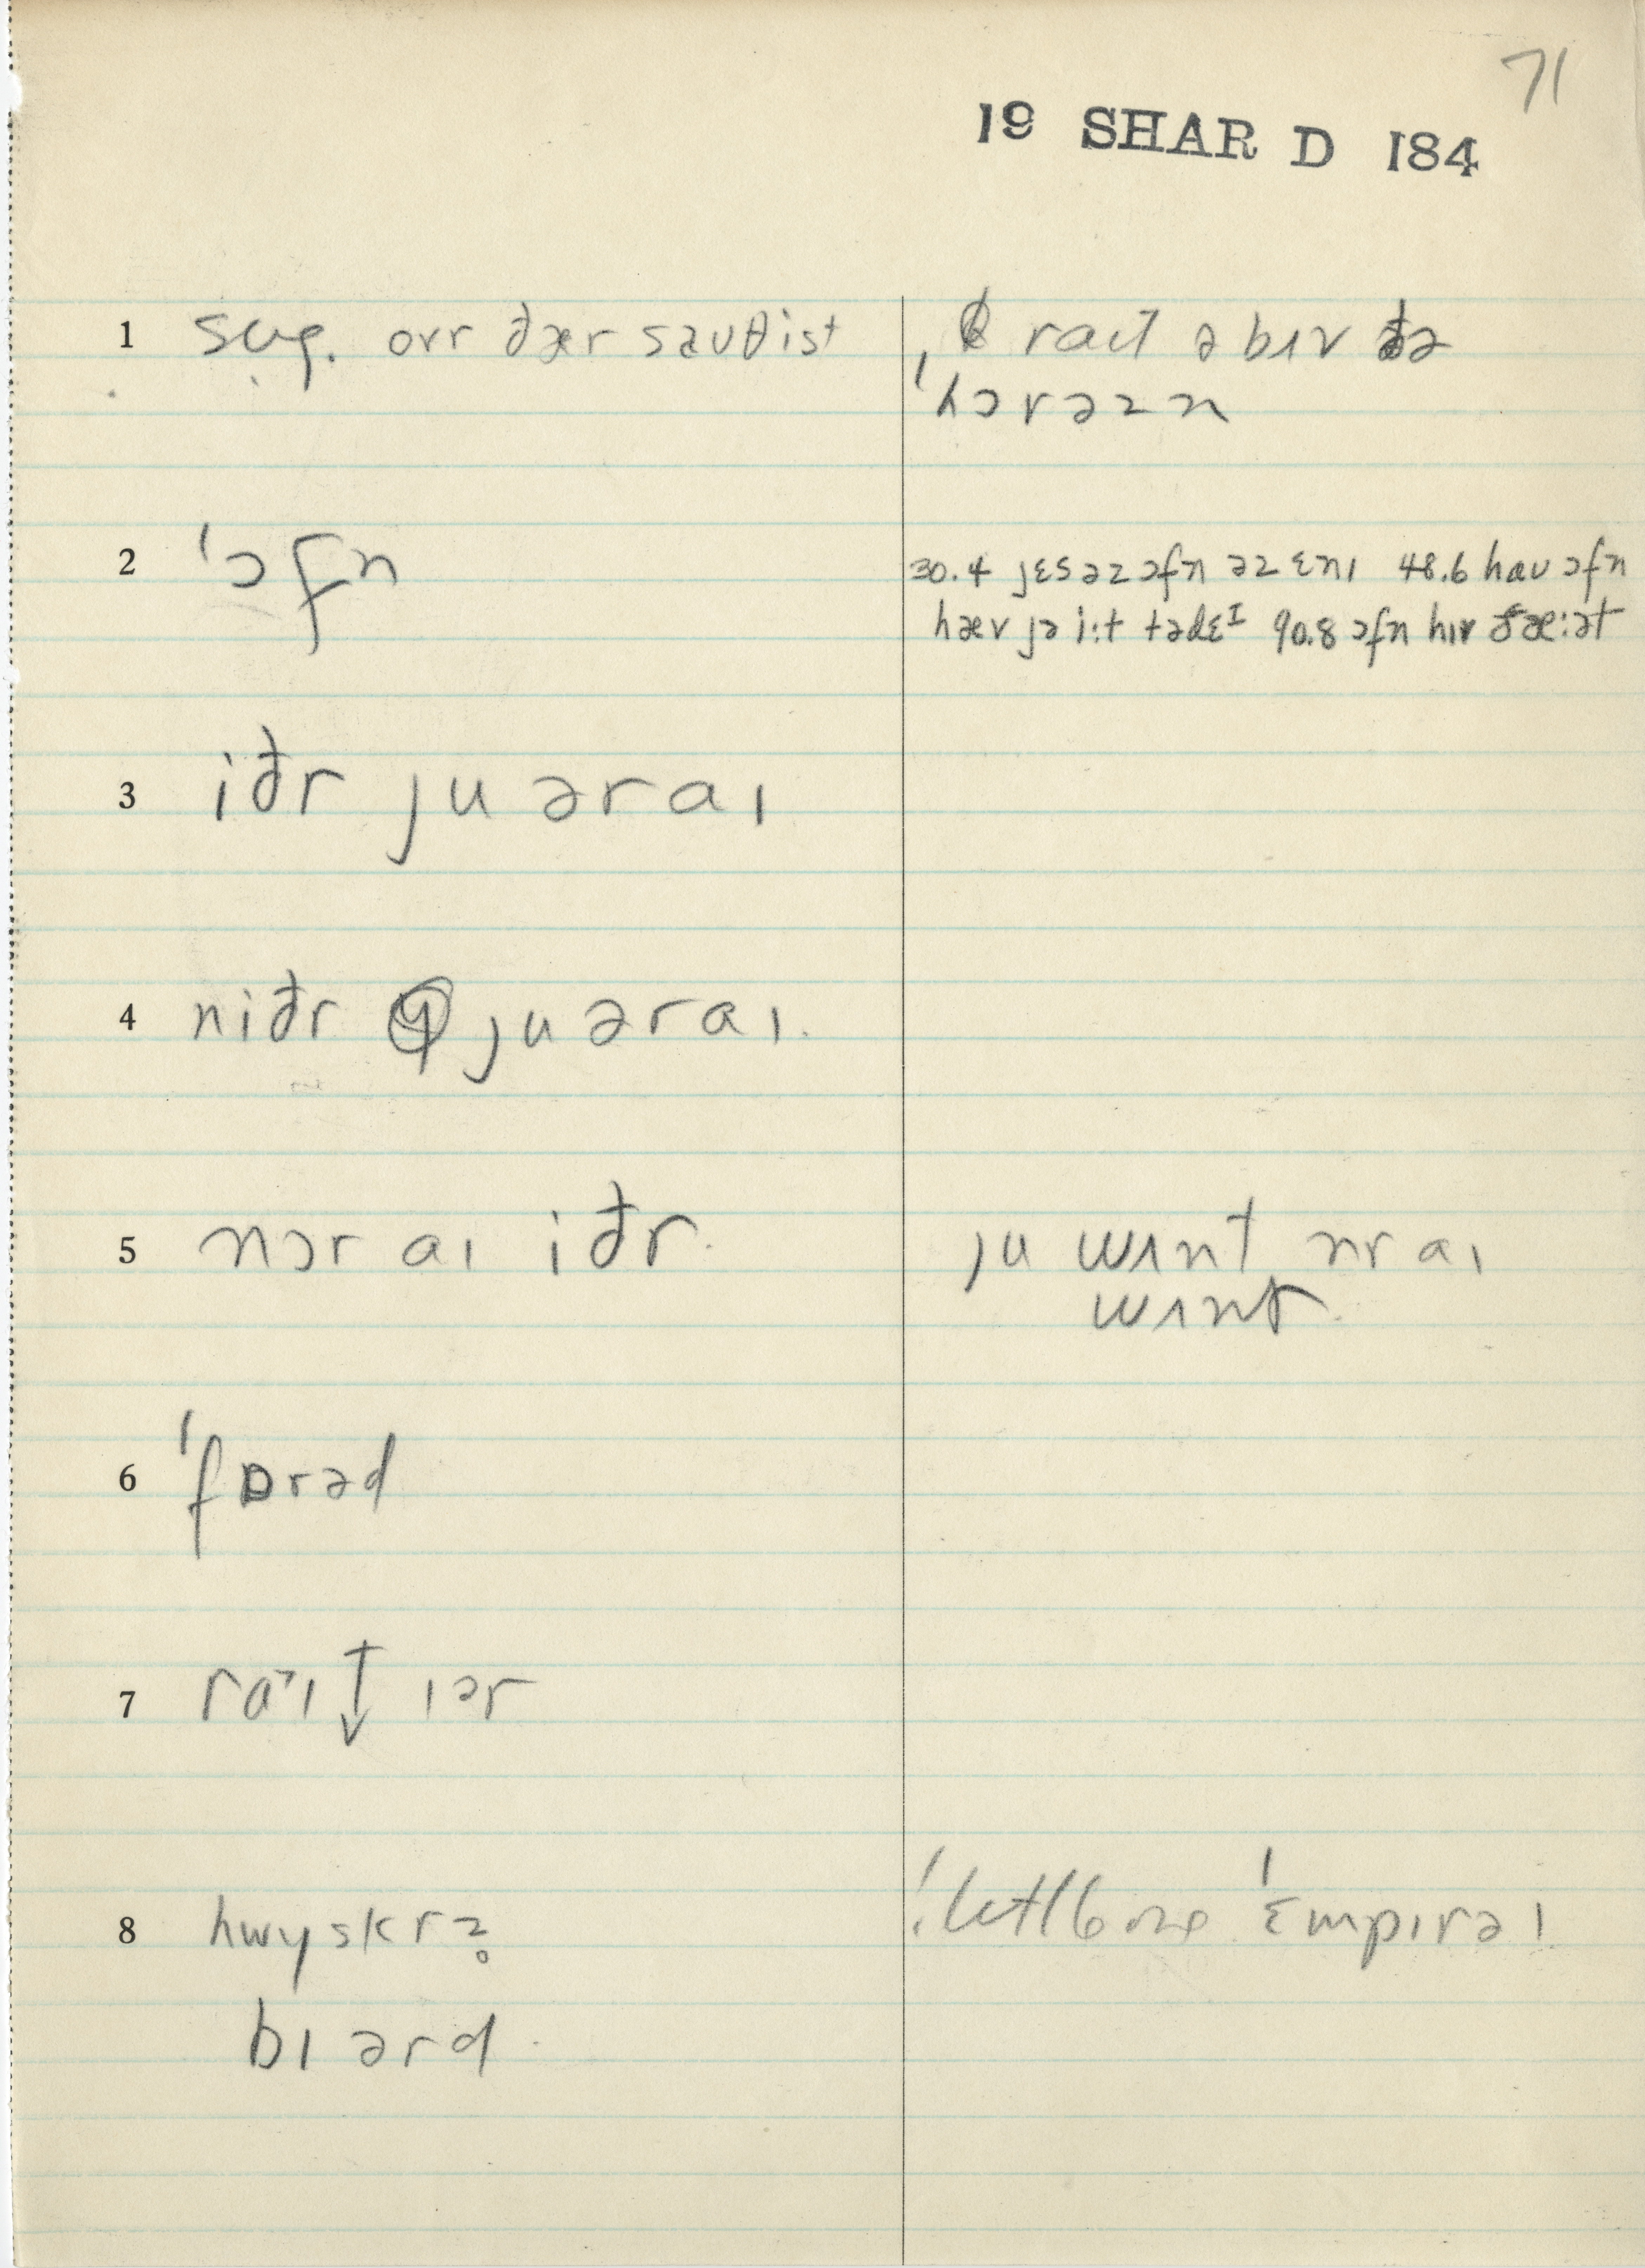 71
19 SHAR D 184
1 sug. ovr ðær sauθist
raɪt əbɪv ðə
'hɔrəzn
2 'ɔfn
30.4 jɛs əz ɔfn əz ɛnɪ 48.6 haʊ ɔfn
hæv jə i:t tədɛᴵ 90.8 ɔfn hɪr ðæ:ət
3 iðr ju ər aɪ
4 niðr ju ər aɪ.
5 nɔr aɪ iðr.
ju wʌnt nr aɪ
wʌnt.
6 'fɒrəd
7 ra˺ɪt↓ ɪər
8 hwyskrz
'ɛmpɪrəl
bɪərd.